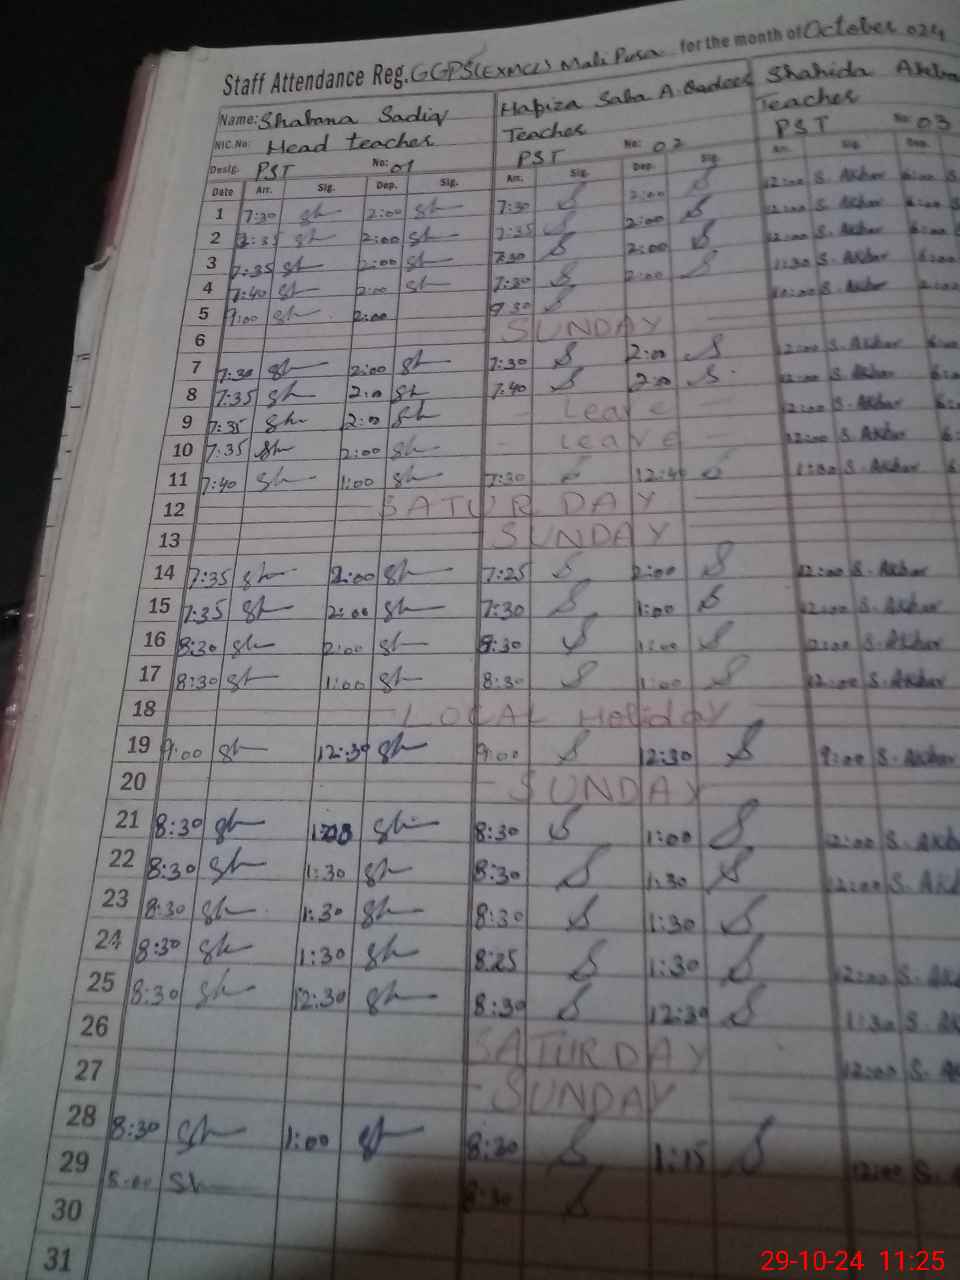 Staff Attendance Reg. GGPS(EXMCL) Mali Pura for the month of October 024
Name: Shabana Sadiq Hafiza Saba A. Shahida Akba
NIC.No: Head teacher Teacher Teacher
Desig. PST No: 01 PST No: 02 PST No 03
Date Arr. Sig. Dep. Sig. Arr. Sig. Dep. Sig. Arr. Sig. Dep.
1 7:30 Sh 2:00 Sh 7:30 S 2:00 S 12:00 S. Akbar 6:00
2 7:35 Sh 2:00 Sh 7:35 S 2:00 S 12:00 S. Akbar 6:00
3 7:35 Sh 2:00 Sh 7:30 S 2:00 S 12:00 S. Akbar 6:00
4 7:40 Sh 2:00 Sh 7:30 S 2:00 S 11:30 S. Akbar 6:00
5 9:00 Sh 2:00 9:30 S S. Akbar
6 SUNDAY
7 7:30 Sh 2:00 Sh 7:30 S 2:00 S 12:00 S. Akbar
8 7:35 Sh 2:00 Sh 7:40 S 2:00 S 12:00 S. Akbar 6:
9 7:35 Sh 2:00 Sh - Leave - 12:00 S. Akbar 6:
10 7:35 Sh 2:00 Sh - Leave - 12:00 S. Akbar 6:
11 7:40 Sh 1:00 Sh 7:30 S 12:40 S 1:30 S. Akbar 6:
12 SATURDAY
13 SUNDAY
14 7:35 Sh 2:00 Sh 7:25 S 2:00 S 12:00 S. Akbar
15 7:35 Sh 2:00 Sh 7:30 S 1:00 S 12:00 S. Akbar
16 8:30 Sh 2:00 Sh 8:30 S 1:00 S S. Akbar
17 8:30 Sh 1:00 Sh 8:30 S 1:00 S 12:00 S. Akbar
18 LOCAL Holiday
19 9:00 Sh 12:30 Sh 9:00 S 12:30 S 9:00 S. Akbar
20 SUNDAY
21 8:30 Sh 1:00 Sh 8:30 S 1:00 S 12:00 S. Akb
22 8:30 Sh 1:30 Sh 8:30 S 1:30 S 12:00 S. Ak
23 8:30 Sh 1:30 Sh 8:30 S 1:30 S
24 8:30 Sh 1:30 Sh 8:25 S 1:30 S 12:00 S. A
25 8:30 Sh 12:30 Sh 8:30 S 12:30 S 1:30 S. Ak
26 SATURDAY 12:00 S. A
27 SUNDAY
28 8:30 Sh 1:00 Sh 8:30 S 1:15 S 12:00 S.
29 8:00 Sh 8:30 S
30
31
29-10-24 11:25